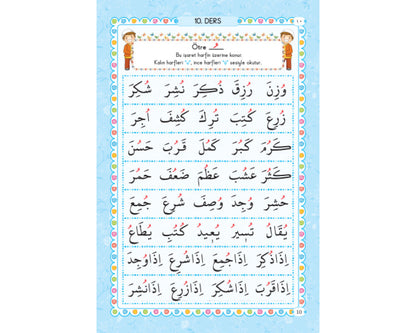 10. DERS
Ötre
Bu işaret harfin üzerine konur.
Kalın harfleri "u", ince harfleri "ü" sesiyle okutur.
وُزِنَ رُزِقَ ذُكِرَ نُشِرَ شُكِرَ
زُرِعَ كُتِبَ تُرِكَ كُشِفَ اُجِرَ
كَرُمَ كَبُرَ كَمُلَ قَرُبَ حَسُنَ
كَثُرَ عَشُبَ عَظُمَ ضَعُفَ حَمُرَ
حُشِرَ وُجِدَ وُصِفَ شُرِعَ جُمِعَ
يُقَالُ تُسٖيرُ يُعٖيدُ كُتُبِ يُطَاعُ
اِذَاذُكِرَ اِذَاجُمِعَ اِذَاشُرِعَ اِذَاوُجِدَ
اِذَاقَرُبَ اِذَاشُكِرَ اِذَازُرِعَ اِذَانُشِرَ
10